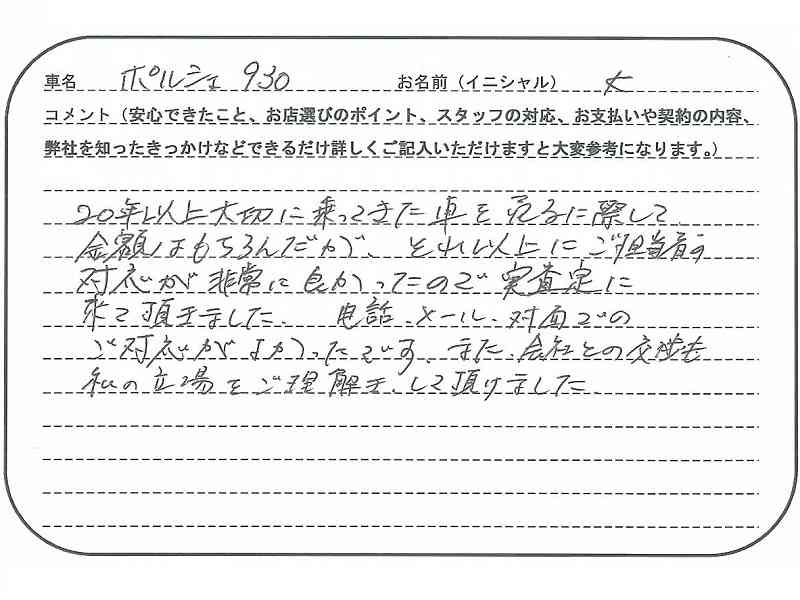 車名 ポルシェ 930 お名前（イニシャル） K
コメント（安心できたこと、お店選びのポイント、スタッフの対応、お支払いや契約の内容、
弊社を知ったきっかけなどできるだけ詳しくご記入いただけますと大変参考になります。）
20年以上大切に乗ってきた車を売るに際して
金額はもちろんだが、それ以上にご担当者の
対応が非常に良かったので実査定に
来て頂きました。 電話、メール、対面での
ご対応がよかったです。また、会社との交渉も
私の立場をご理解 して頂けました。